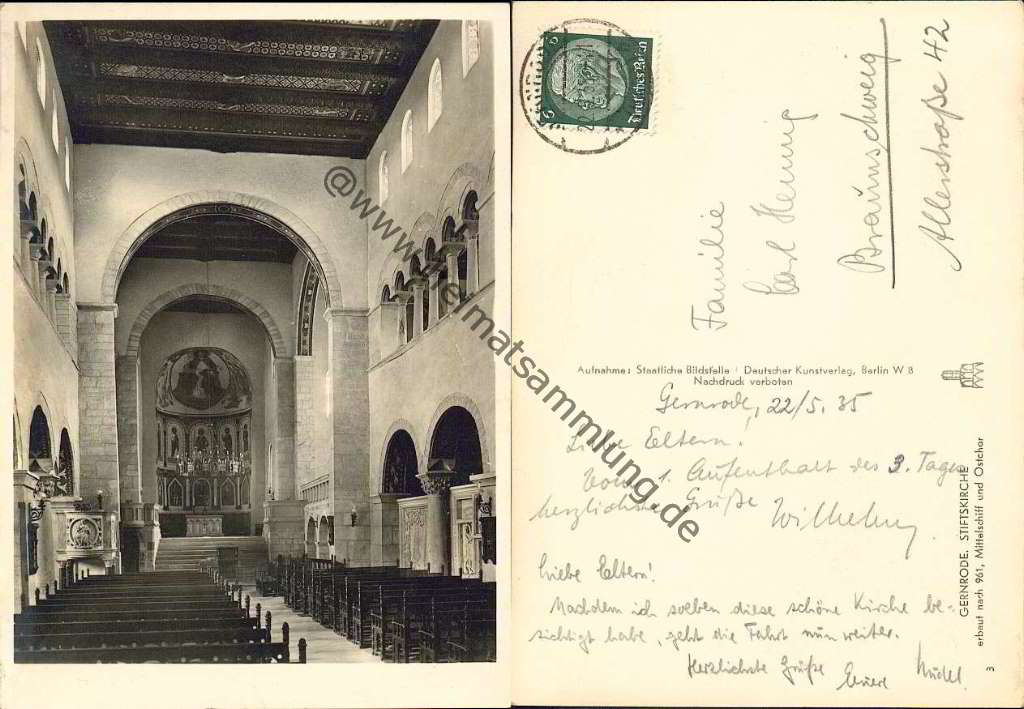 @www.heimatsammlung.de
6
6
Deutsches Reich
Familie
Carl Hennig
Braunschweig
Allerstraße 42
Aufnahme: Staatliche Bildstelle / Deutscher Kunstverlag, Berlin W 8
Nachdruck verboten
Gernrode, 22/5. 35
Liebe Eltern!
Vom 1. Aufenthalt des 3. Tages
herzlichste Grüße Wilhelm
Liebe Eltern!
Nachdem ich soeben diese schöne Kirche be-
sichtigt habe, geht die Fahrt nun weiter.
Herzlichste Grüße
Euere
GERNRODE. STIFTSKIRCHE
erbaut nach 961, Mittelschiff und Ostchor
3